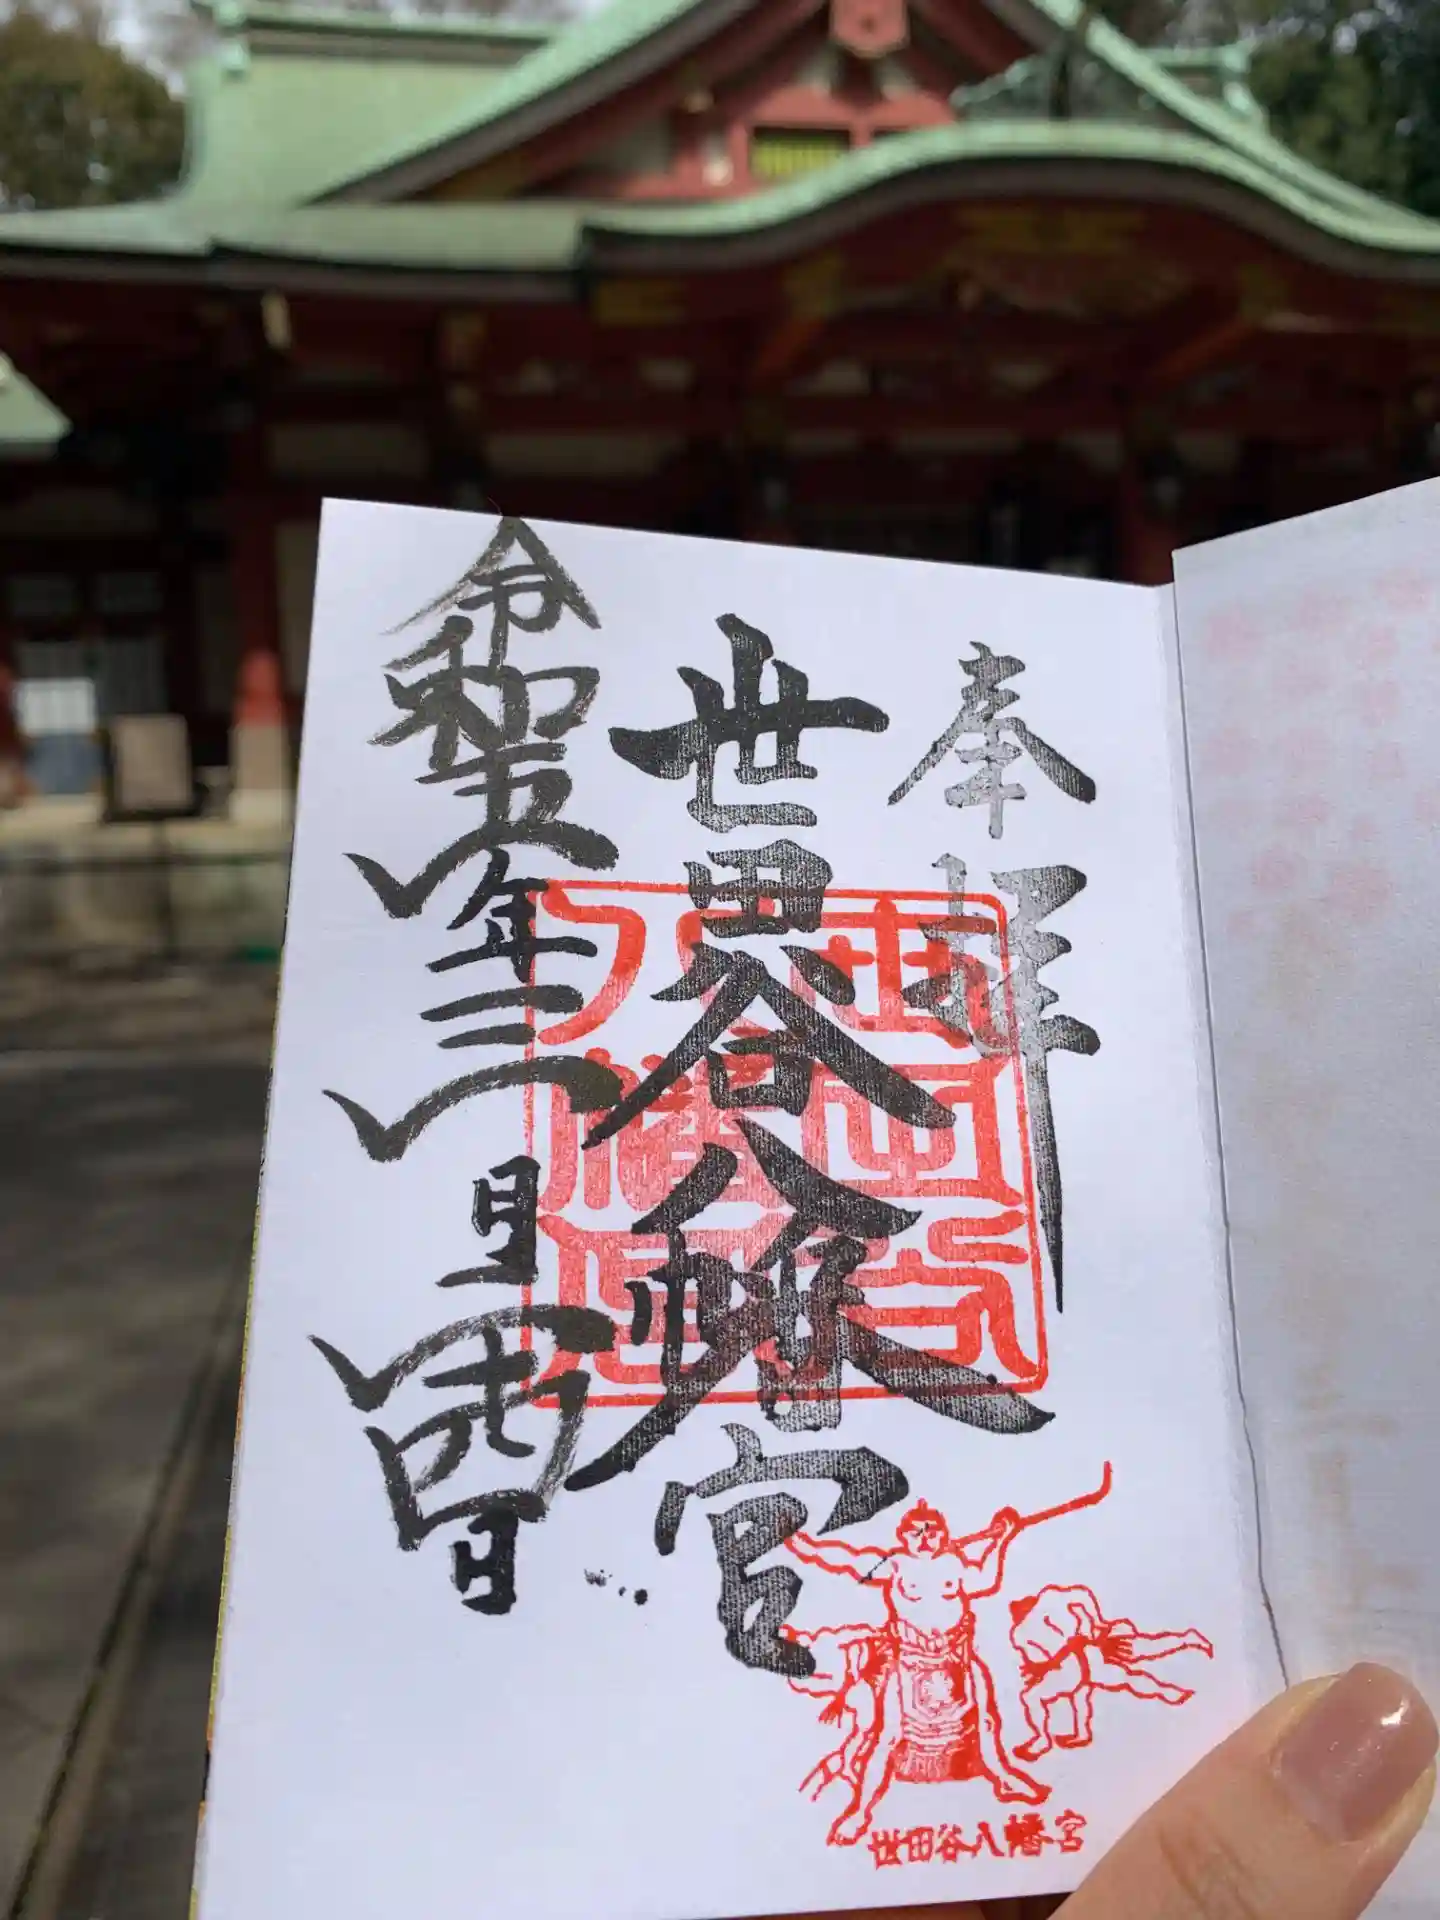 奉拝
世田谷八幡宮
令和五年三月日
世田谷八幡宮
世田谷八幡宮